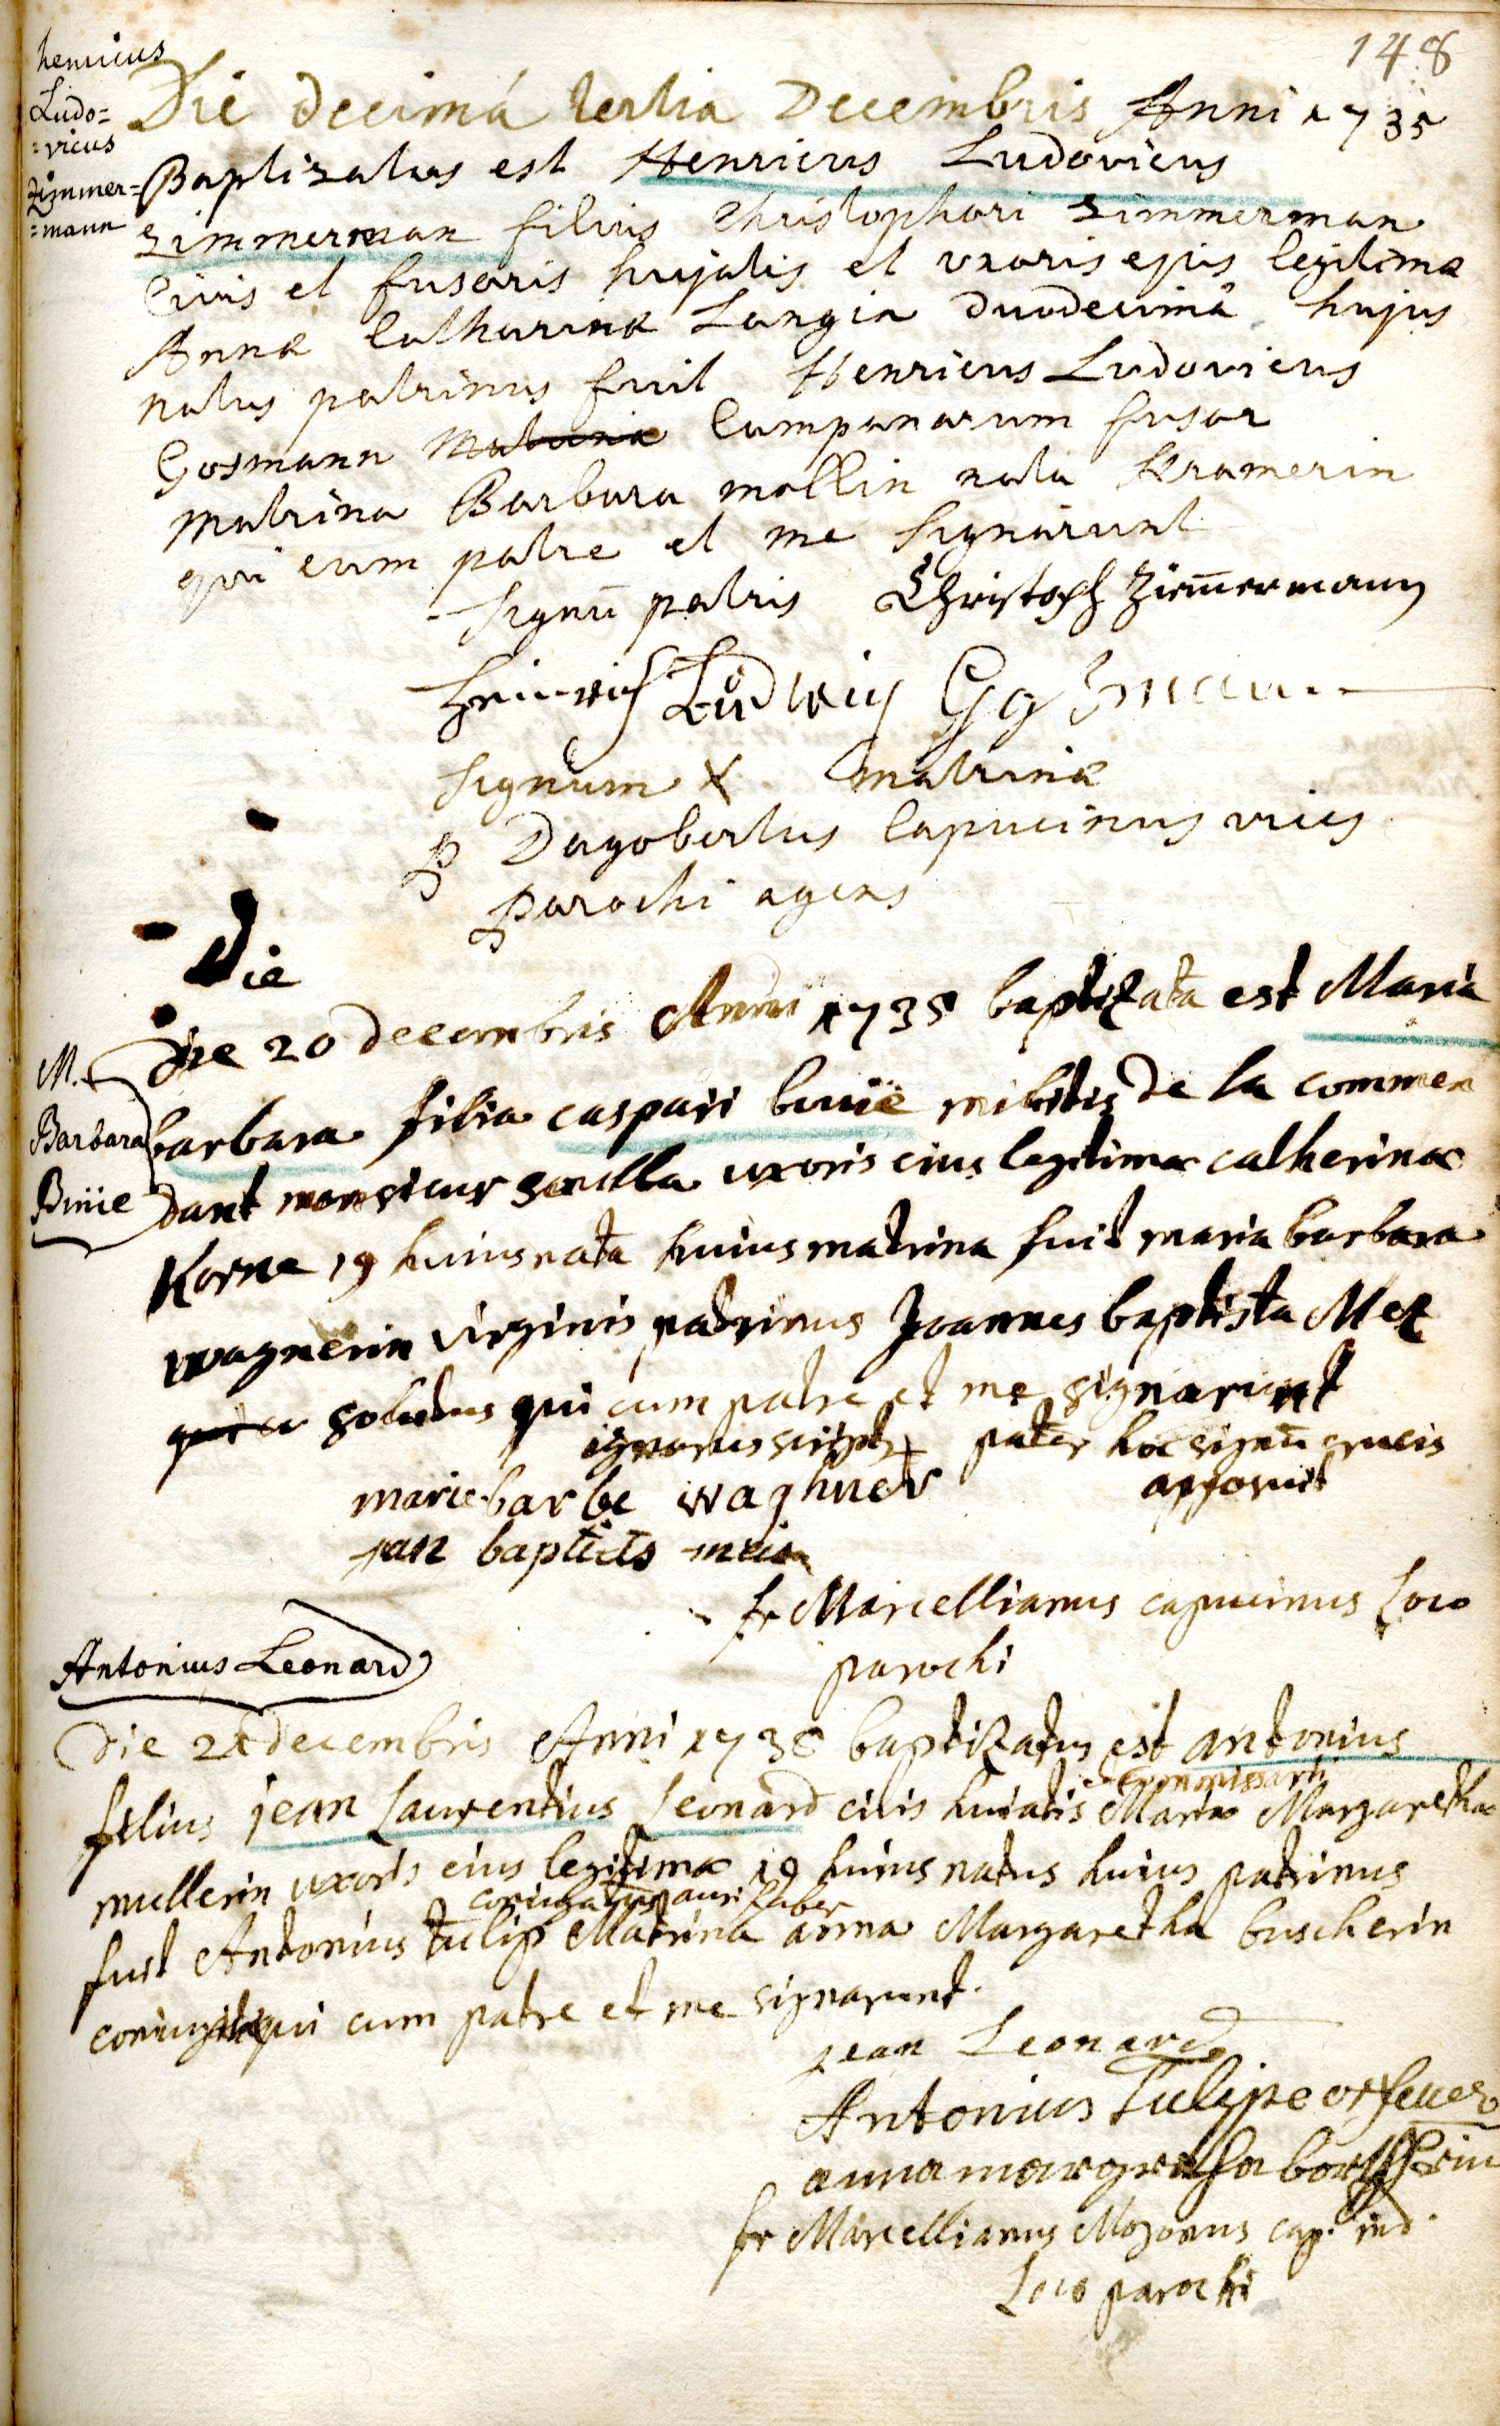 148
henricus
Ludo=
=vicus
Zimmer=
=mann
Die decimá tertia Decembris Anni 1735
Baptizatus est Henricus Ludovicus
Zimmerman filius Christophori Zimmerman
Civis et fusoris hujatis et uxoris ejus legitimæ
Annæ Catharinæ Langin duodecimâ hujus
natus patrinus fuit Henricus Ludovicus
Gosmann Matrina Campanarum fusor
Matrina Barbara mollin nata Kramerin
qui cum patre et me signarunt
signū patris Christoph Zim̄ermann
Heinrich Ludwig Goszmann
signum X matrinæ
P Dagobertus Capucinus vices
parochi agens
Die
M.
Barbara
Buüe
Die 20 decembris Anni 1735 baptizata est Maria
barbara filia caspari buuë militis de la commen
dant monsieur uxoris eius legitimæ catherinæ
Korne 19 huius nata huius matrina fuit maria barbara
wagnerin virginis patrinus Joannes baptista Mez
solutus qui cum patre et me signarunt
ignarus script + pater hoc signū crucis
apposuit
marie barbe waghner
jan baptits
fr Marcellianus capucinus Loco
parochi
Antonius Leonard
Die 21 decembris Anni 1735 baptizatus est antonius
filius jean Laurentius Leonard civis huiatis commissarii Mariæ Margarethæ
mullerin uxoris eius legitimæ 19 huius natus huius patrinus
fuit Antonius tulip coniugatus auri faber Matrina anna Margaretha buscherin
qui cum patre et me signarunt.
jean Leonard
Antonius Tulippe orfeuer
anna margretha
fr Marcellianus cap. ind.
Loco parochi